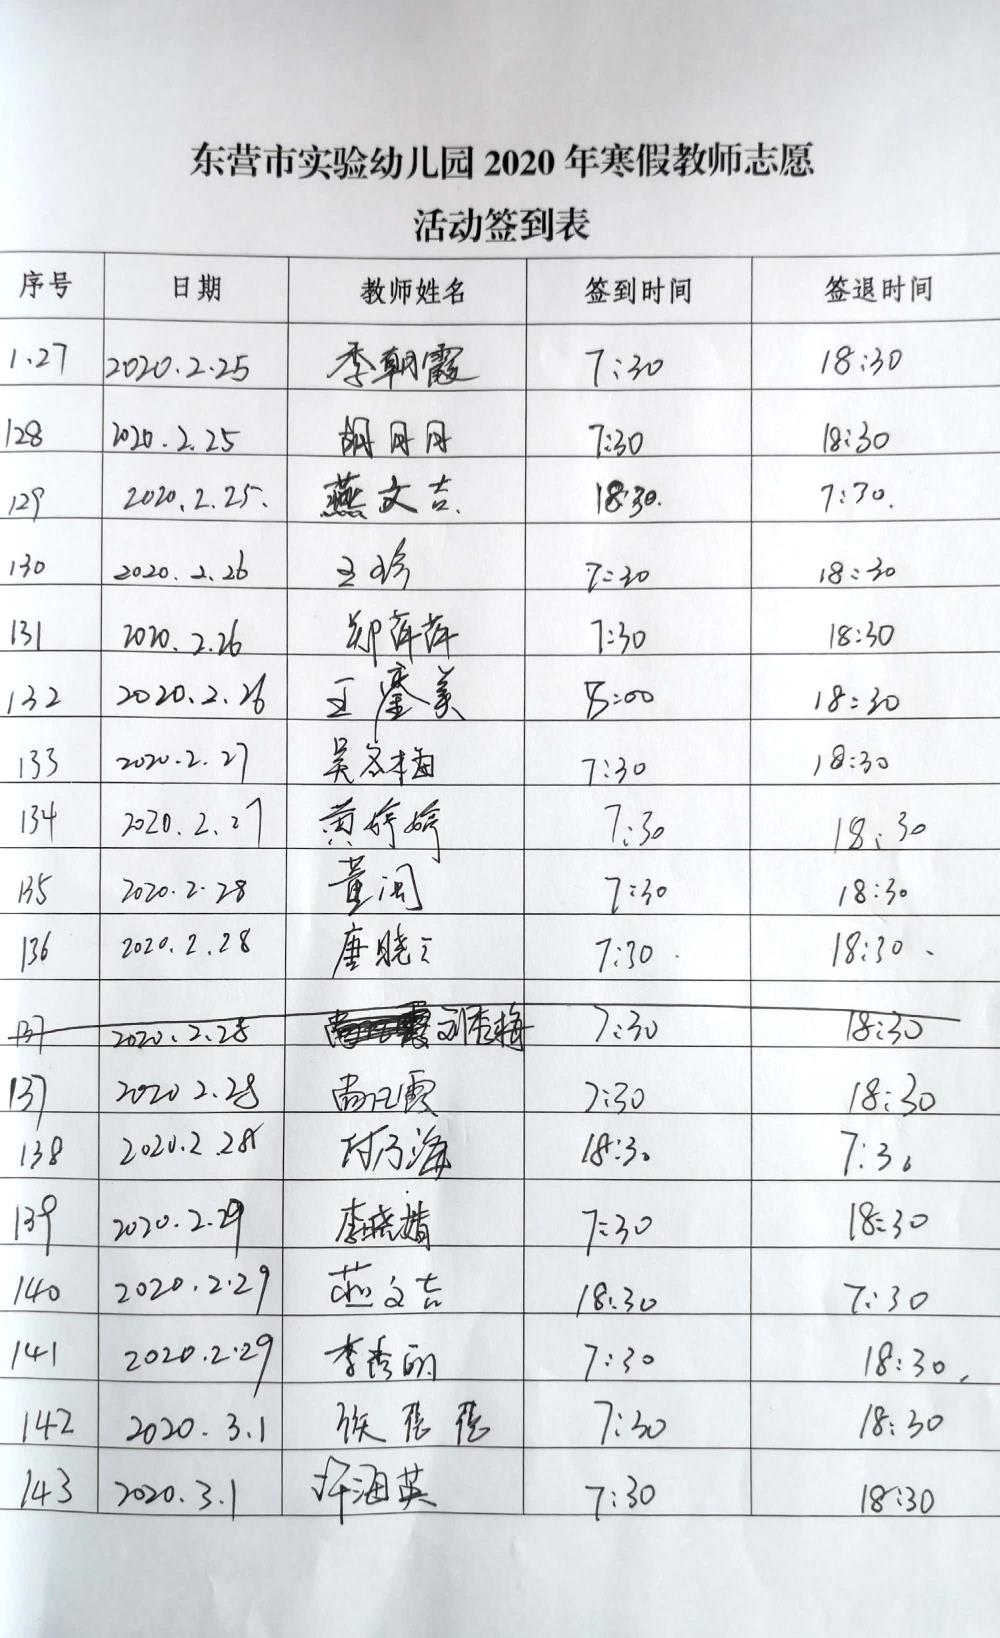 东营市实验幼儿园 2020 年寒假教师志愿
活动签到表
序号 日期 教师姓名 签到时间 签退时间
1.27 2020.2.25 季朝霞 7:30 18:30
128 2020.2.25 胡丹丹 7:30 18:30
129 2020.2.25. 燕文吉. 18:30. 7:30.
130 2020.2.26 王珍 7:30 18:30
131 2020.2.26 郑萍萍 7:30 18:30
132 2020.2.26 王鎏美 8:00 18:30
133 2020.2.27 吴冬梅 7:30 18:30
134 2020.2.27 黄婷婷 7:30 18:30
135 2020.2.28 董闽 7:30 18:30
136 2020.2.28 唐晓 7:30 18:30
137 2020.2.28 刘杏梅 7:30 18:30
137 2020 2.28 尚霞 7:30 18:30
138 2020.2.28 海 18:30 7:30
139 2020.2.29 李晓婧 7:30 18:30
140 2020.2.29 燕文吉 18:30 7:30
141 2020.2.29 李秀丽 7:30 18:30.
142 2020.3.1 侯 7:30 18:30
143 2020.3.1 许海英 7:30 18:30